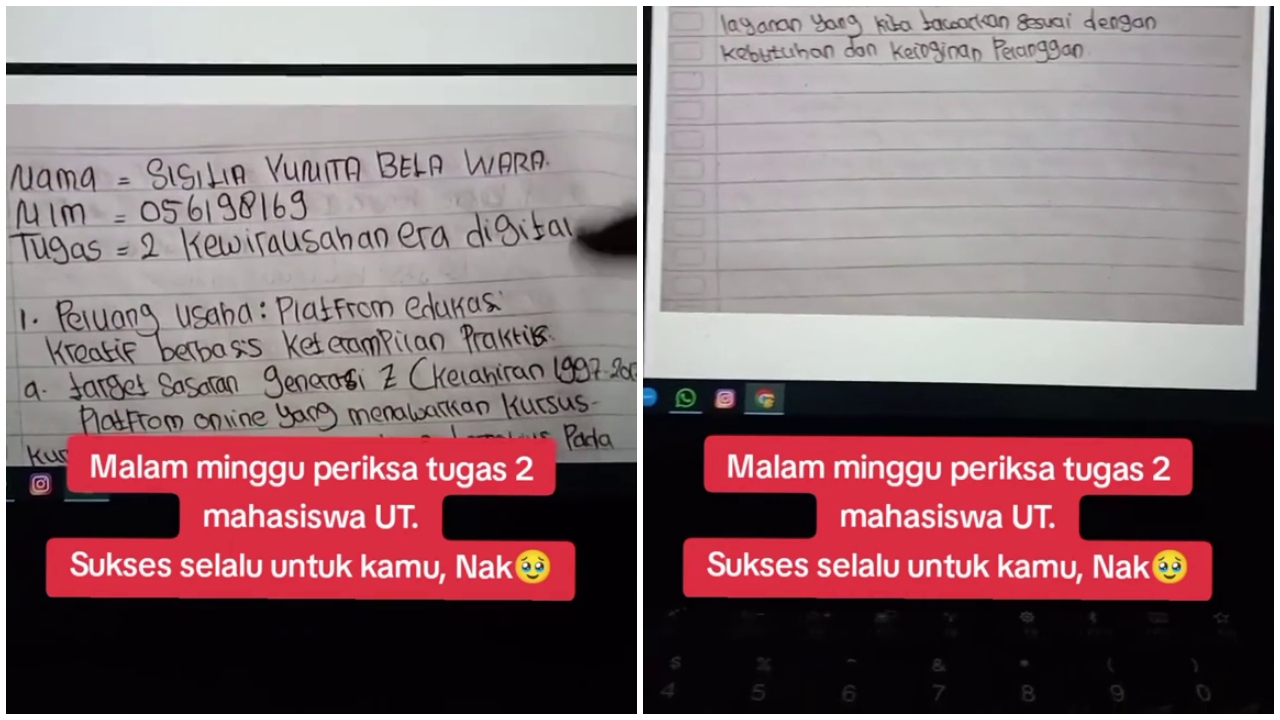 Nama = SISILIA YUNITA BELA WARA.
NIM = 056198169
Tugas = 2 Kewirausahan era digital
1. Peluang usaha: Platfrom edukasi
Kreatif berbasis Keterampilan Praktis.
a. target Sasaran generasi Z (Kelahiran 1997-
Platfrom online yang menawarkan Kursus-
Pada
Malam minggu periksa tugas 2
mahasiswa UT.
Sukses selalu untuk kamu, Nak🥹
layanan yang kita tawarkan sesuai dengan
kebutuhan dan keinginan Pelanggan.
Malam minggu periksa tugas 2
mahasiswa UT.
Sukses selalu untuk kamu, Nak🥹
$ % ^ & * ( )
4 5 6 7 8 9 0